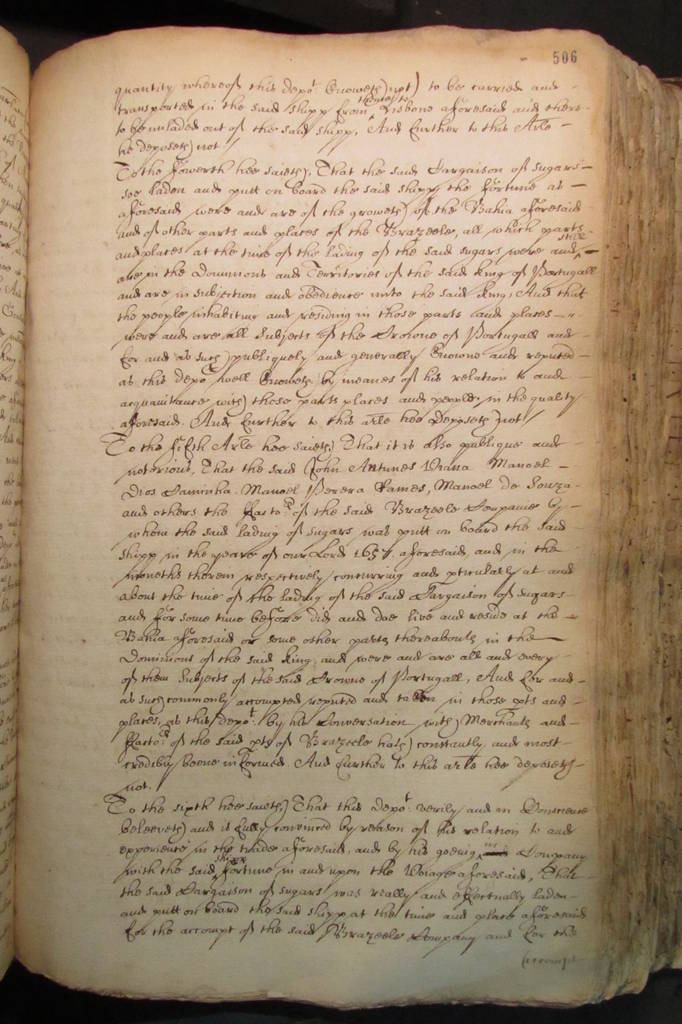 506
quantity whereof this depot. knoweth not) to be carried and
transported in the said shipp from thence to Lisbone aforesaid and there
to be unladed out of the said shipp, And further to this Arle
he deposeth not/
To the fowerth hee saieth, That the said Cargaison of sugars
soe laden and putt on board the said shipp the fortune as
aforesaid were and are of the groweth of the Bahia aforesaid
and of other parts and places of the Brazeele, all which parts
and places at the time of the lading of the said sugars were and still
are in the Dominions and Territories of the said King of Portugall
and are in subjection and obedience unto the said King, And that
the people inhabiting and residing in those parts and places
were and are all Subjects of the Crowne of Portugall and
for and as such publiquely and generally knowne and reputed
as this depot. well knoweth by meanes of his relation to and
acquaintance with those parts places and people, in the quality
aforesaid. And further to this arle hee deposeth not/
To the fifth Arle hee saieth, That it is also publique and
notorious, That the said John Antunes Viana Manoel
Dios Caminha, Manoel Perera Rames, Manoel de Souza
and others the Factors. of the said Brazeele Companie by
whom the said lading of sugars was putt on board the said
shipp in the yeare of our Lord 1657 aforesaid, and in the
moneths therein respectively concurring and pticularly at and
about the time of the lading of the said Cargaison of sugars
and for some time before did and doe live and reside at the
Bahia aforesaid or some other parts thereabouts in the
Dominions of the said King, and were and are all and every
of them Subjects of the said Crowne of Portugall, And for and
as such commonly accompted reputed and taken in those pts and
places, as this depot. by his Conversation with Merchants and
Factors. of the said pts of Brazeele hath constantly and most
credibly beene informed. And further to this arle hee deposeth
not.
To the sixth hee saieth, That this depot. verily and in Conscience
beleeveth and is fully convinced by reason of his relation to and
experience in the trade aforesaid, and by his goeing in Company
with the said shipp fortune in and upon the Voiage aforesaid, That
the said Cargaison of sugars was really and effectually laden
and putt on board the said shipp at the time and place aforesaid
for the accompt of the said Brazeele Company and for the
accompt